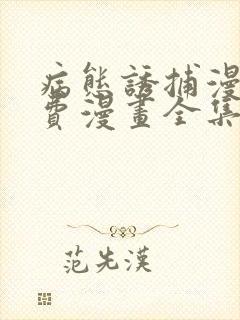 病態誘捕漫
費漫畫全集
范先漢